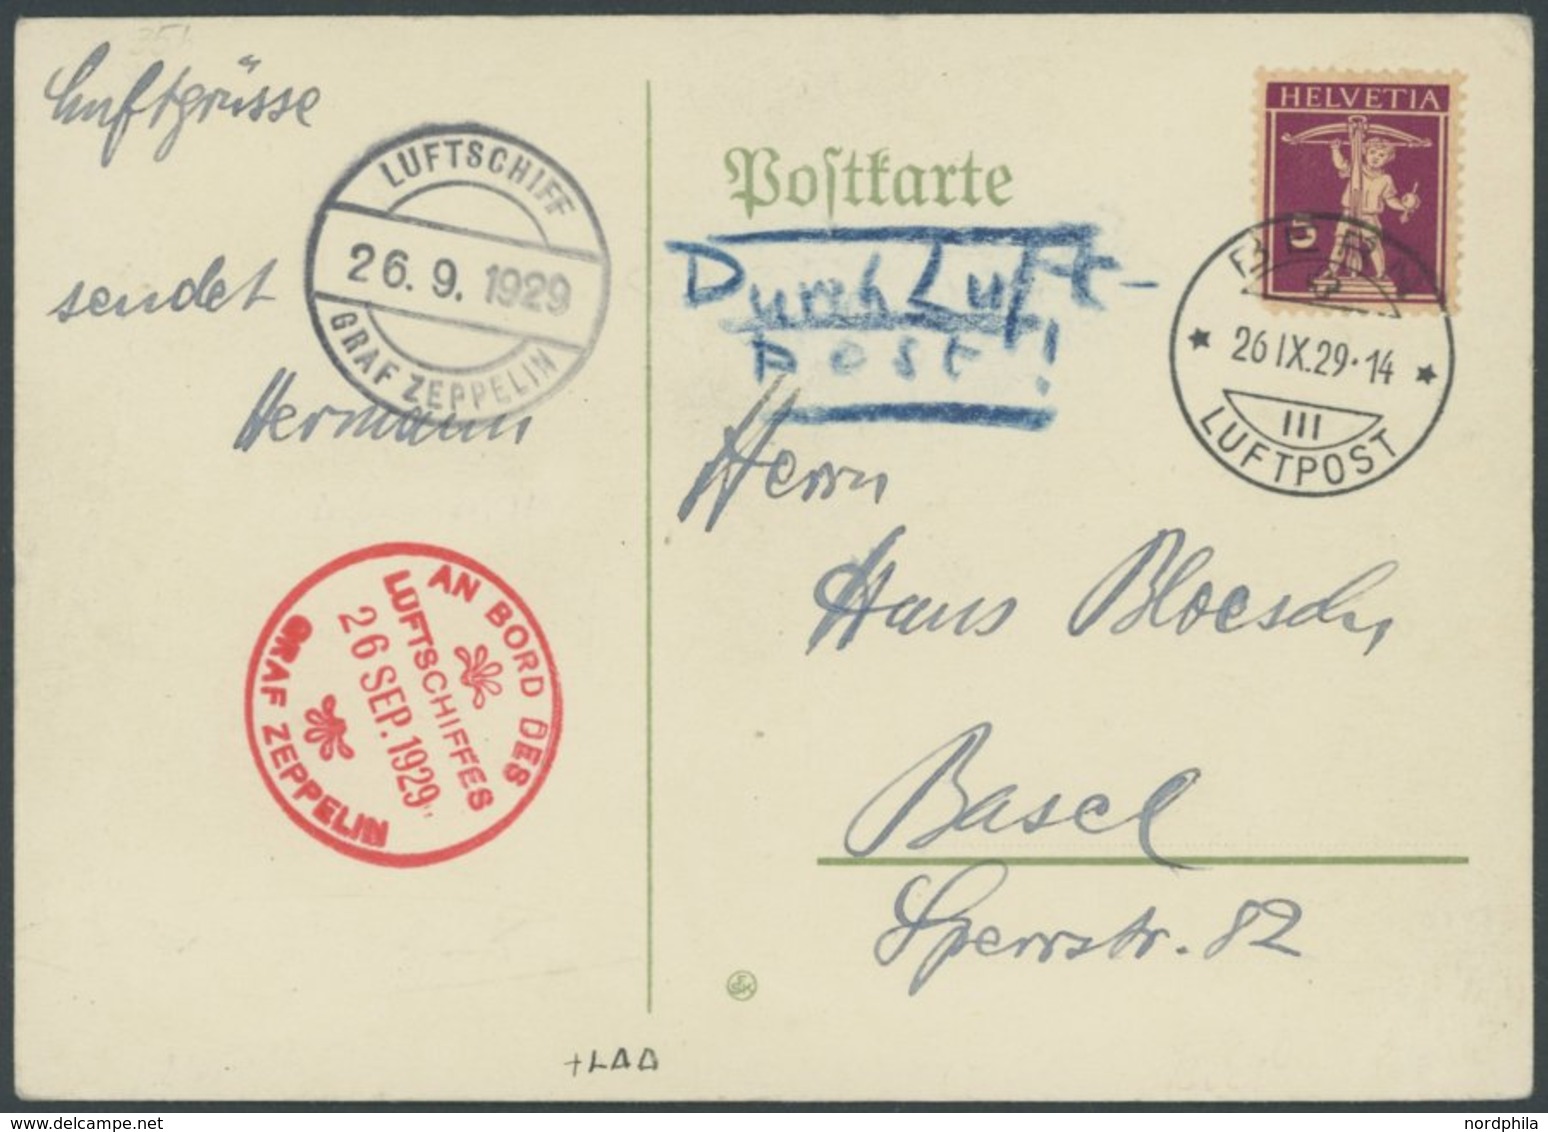 Luftgrüsse
sendet
Hermann
LUFTSCHIFF
26.9.1929
GRAF ZEPPELIN
AN BORD DES
LUFTSCHIFFES
26 SEP. 1929
GRAF ZEPPELIN
Poſtkarte
Durch Luft-
post!
HELVETIA
5
BERN
26 IX.29·14
III
LUFTPOST
Herrn
Hans Bloesch
Basel
Sperrstr. 82
nordphila